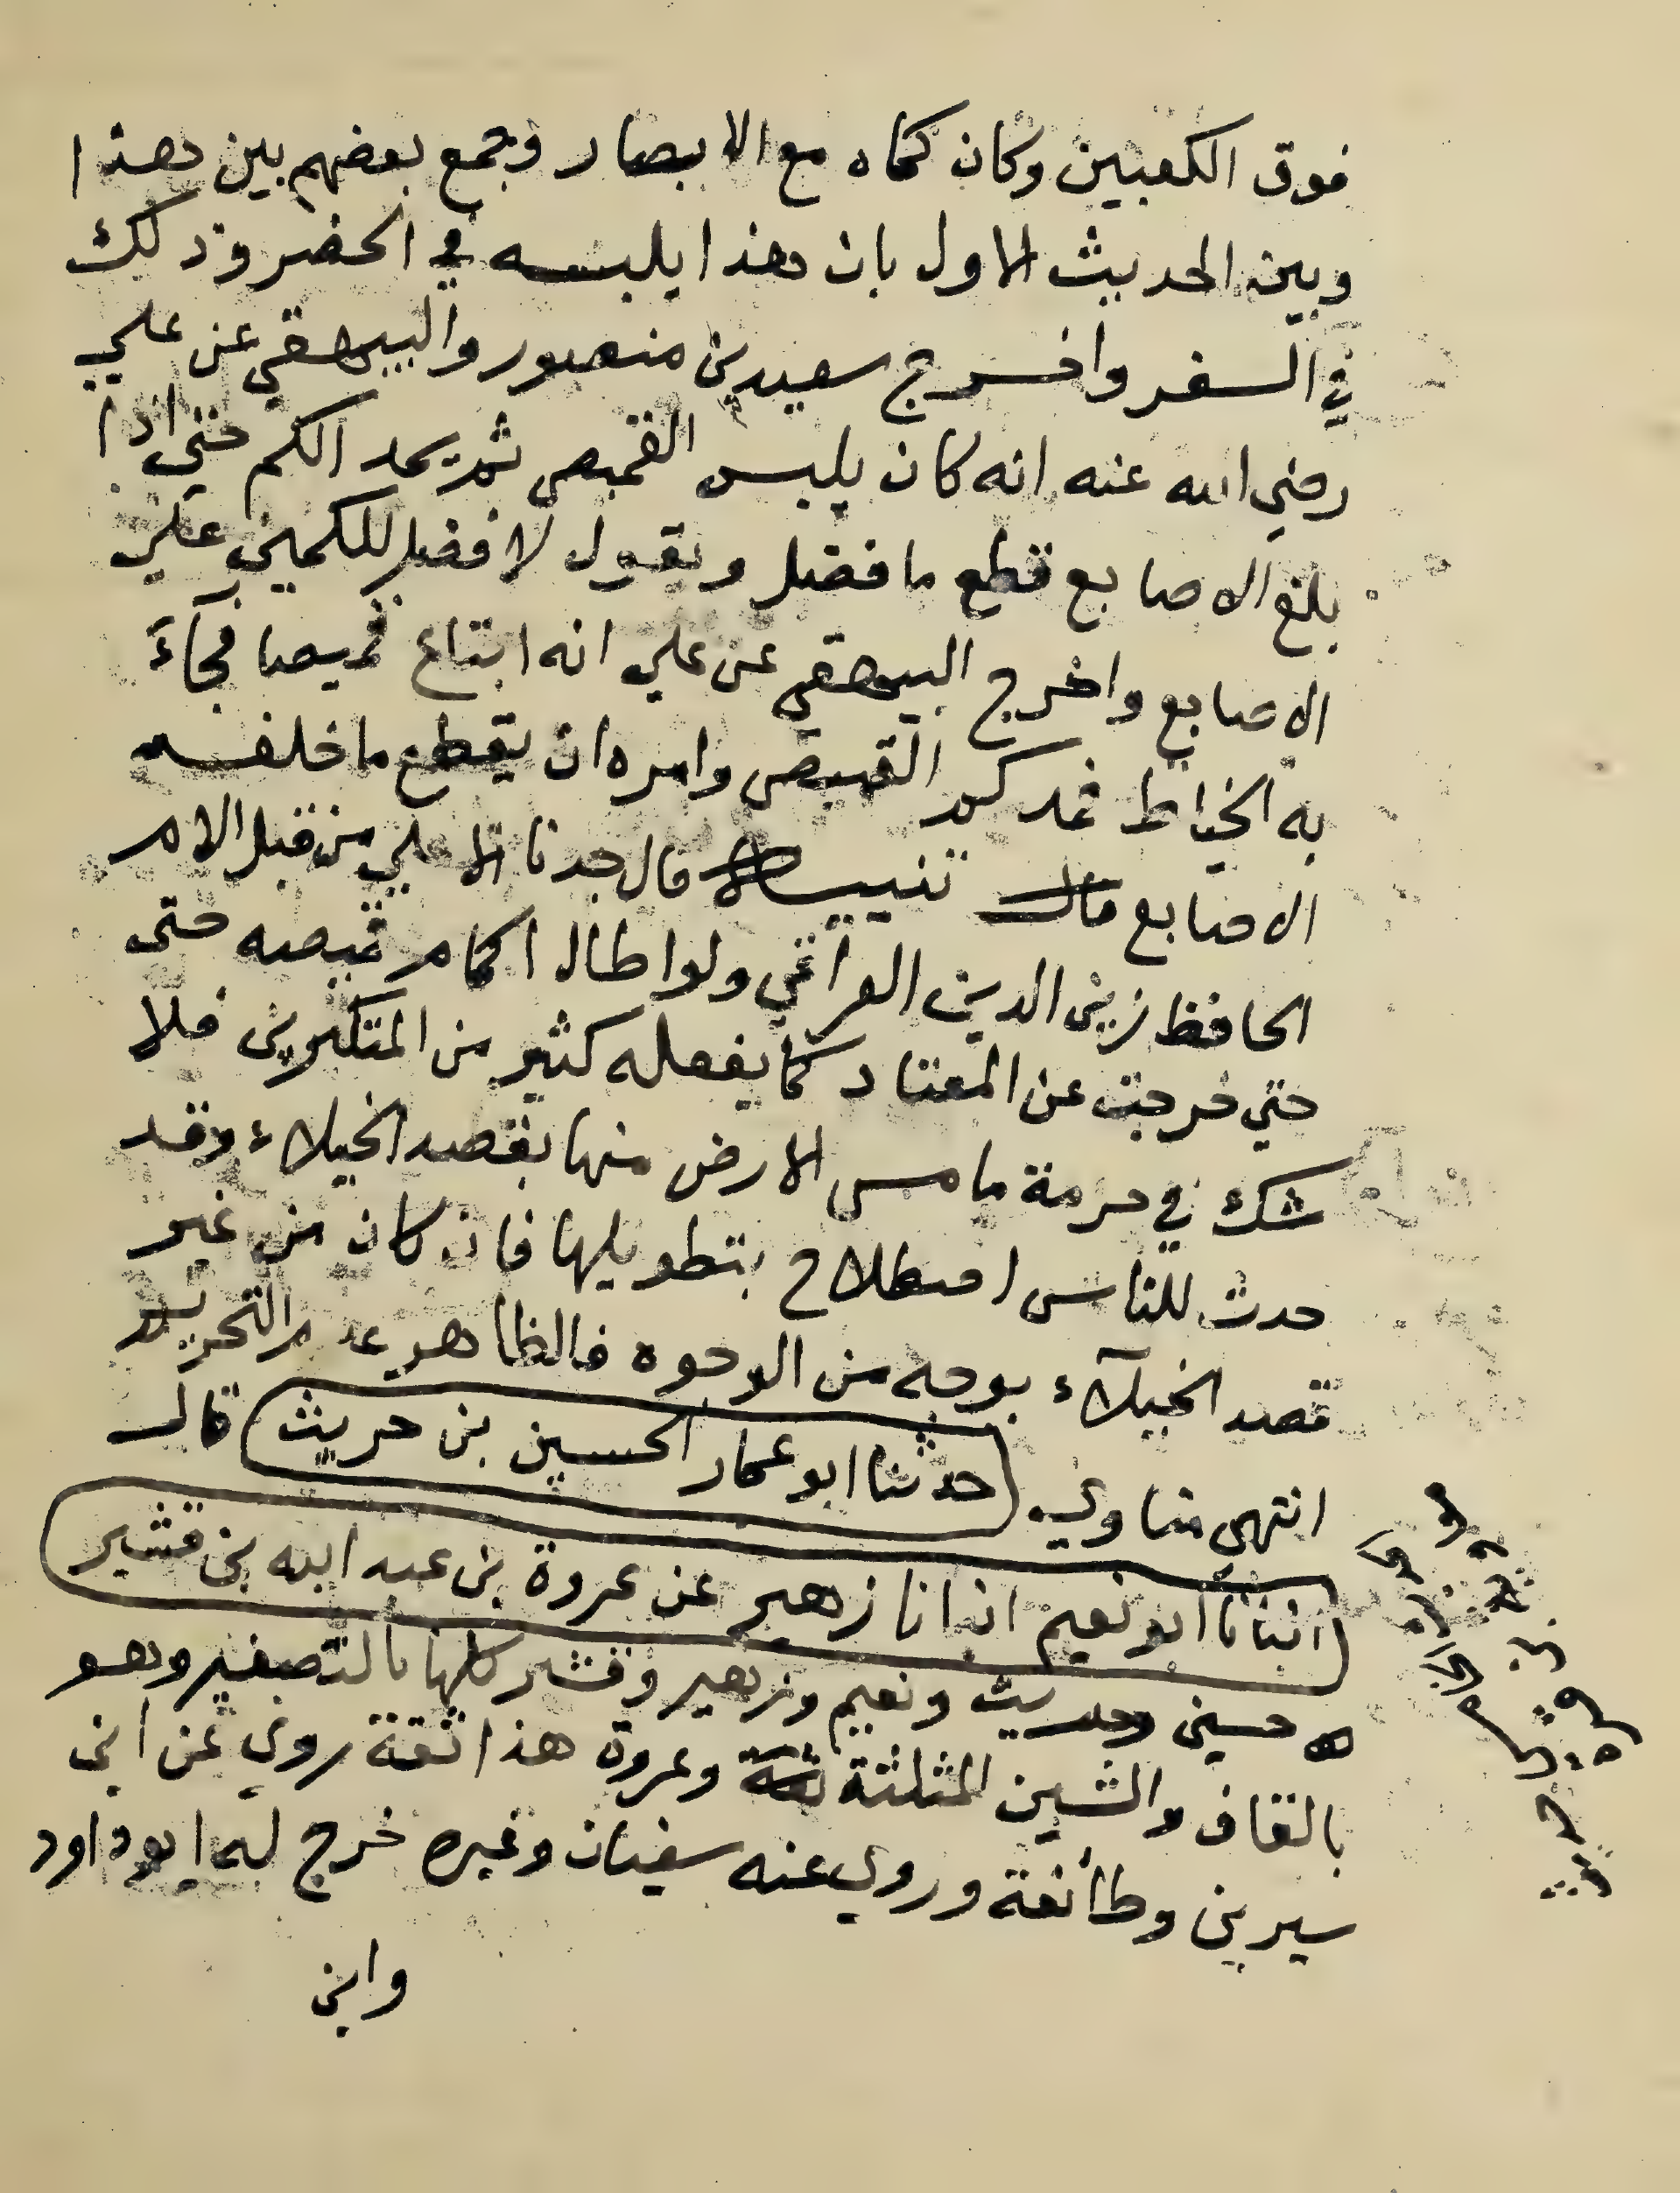 فوق الكعبين وكان كماه مع الابصار وجمع بعضهم بين هذا
وبين الحديث الاول بان هذا يلبسه في الحضر وذلك
في السفر واخرج سعيد بن منصور والبيهقي عن علي
رضي الله عنه انه كان يلبس القميص ثم يمد الكم حتي اذا
بلغ الاصابع قطع ما فضل ويقول لا فضل للكمين علي
الاصابع واخرج البيهقي عن علي انه ابتاع قميصا فجآء
به الخياط فمد كم القميص وامره ان يقطع ما خلفه
الاصابع قال تنبيه قال جدنا الاعلي من قبل الام
الحافظ زين الدين العراقي ولو اطال اكمام قميصه حتى
حتي خرجت عن المعتاد كما يفعله كثير من المتكبرين فلا
شك في حرمة ما مس الارض منها بقصد الخيلاء وقد
حدث للناس اصطلاح بتطويلها فان كان من غير
قصد الخيلآء بوجه من الوجوه فالظاهر عدم التحريم
انتهى مناوي حدثنا ابو عمار الحسين بن حريث قال
انبانا ابو نعيم انبانا زهير عن عروة بن عبد الله بن قشير
حسين وحريث ونعيم وزهير وقشير كلها بالتصغير وهو
بالقاف والشين المثلثة ثقة وعروة هذا ثقة روي عن ابن
سيرين وطائفة وروي عنه سفيان وغيره خرج له ابو داود
وابن